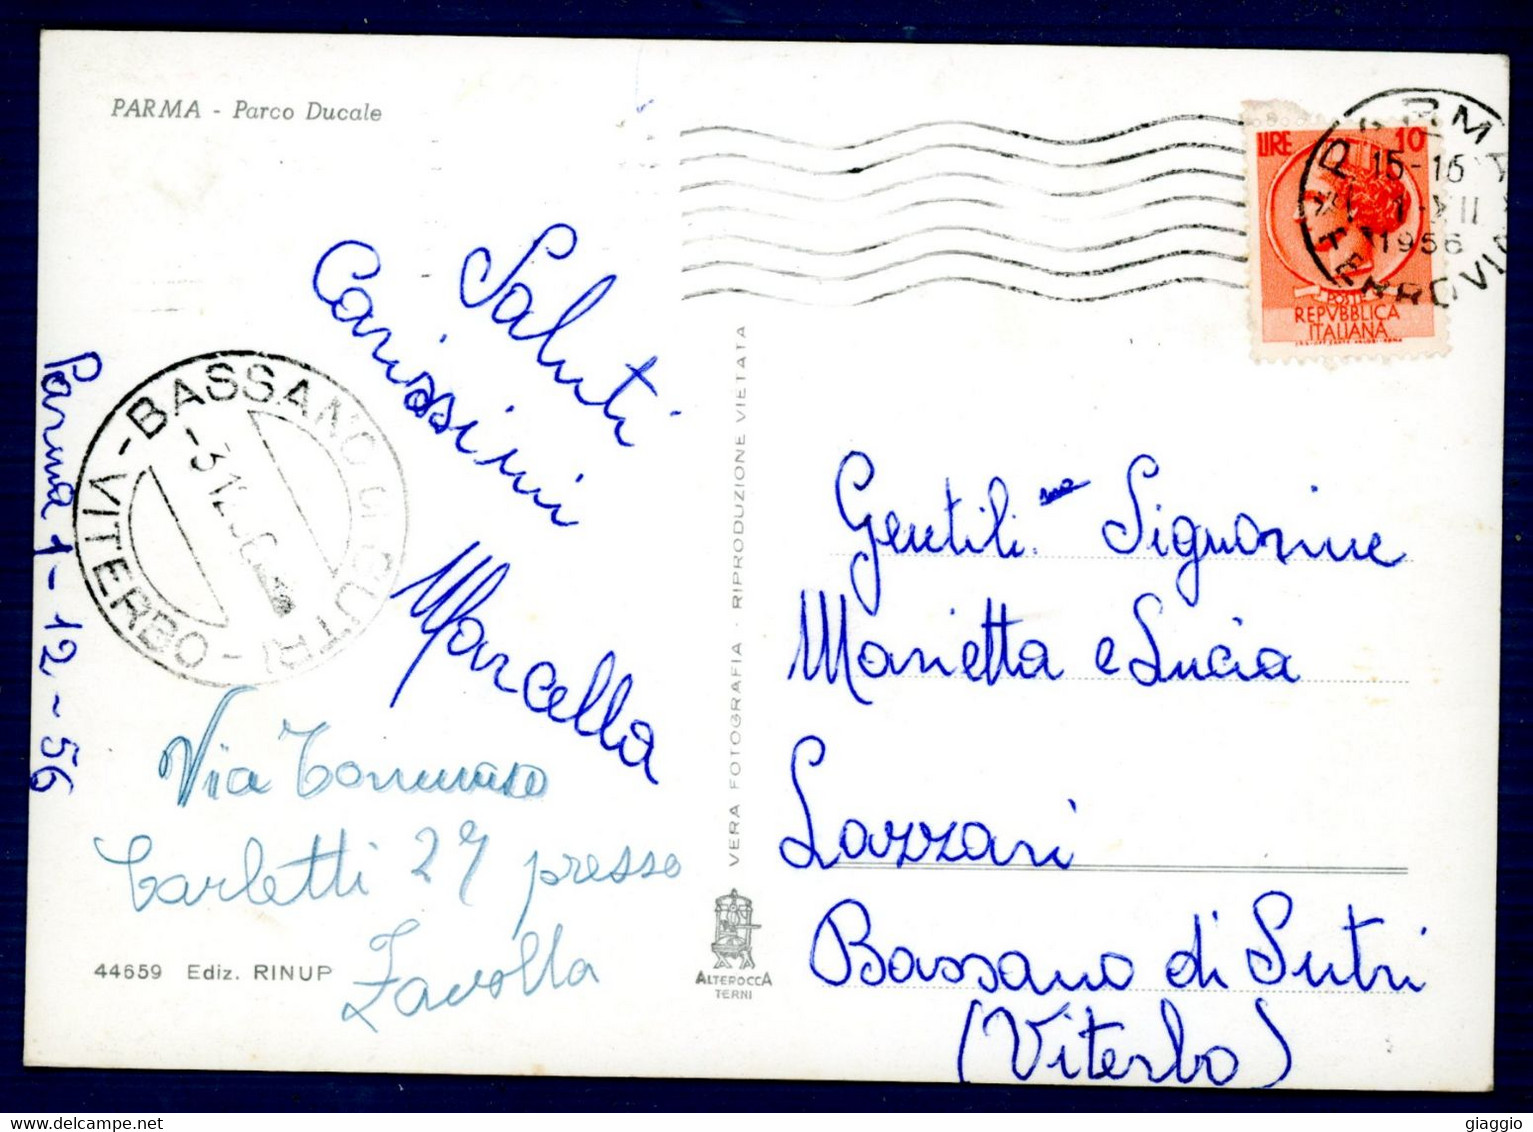 PARMA - Parco Ducale
Saluti
Carissimi
Marcella
Parma 1-12-56
BASSANO DI SUTRI - VITERBO -
-3.12.56
Via Tommaso
Carletti 27 presso
Zavolla
44659 Ediz. RINUP
VERA FOTOGRAFIA - RIPRODUZIONE VIETATA
ALTEROCCA
TERNI
LIRE 10
POSTE
REPVBBLICA
ITALIANA
PARMA
15-16
1-XII
1956
FERROVIA
Gentili.me Signorine
Marietta e Lucia
Lazzari
Bassano di Sutri
(Viterbo)
giaggio